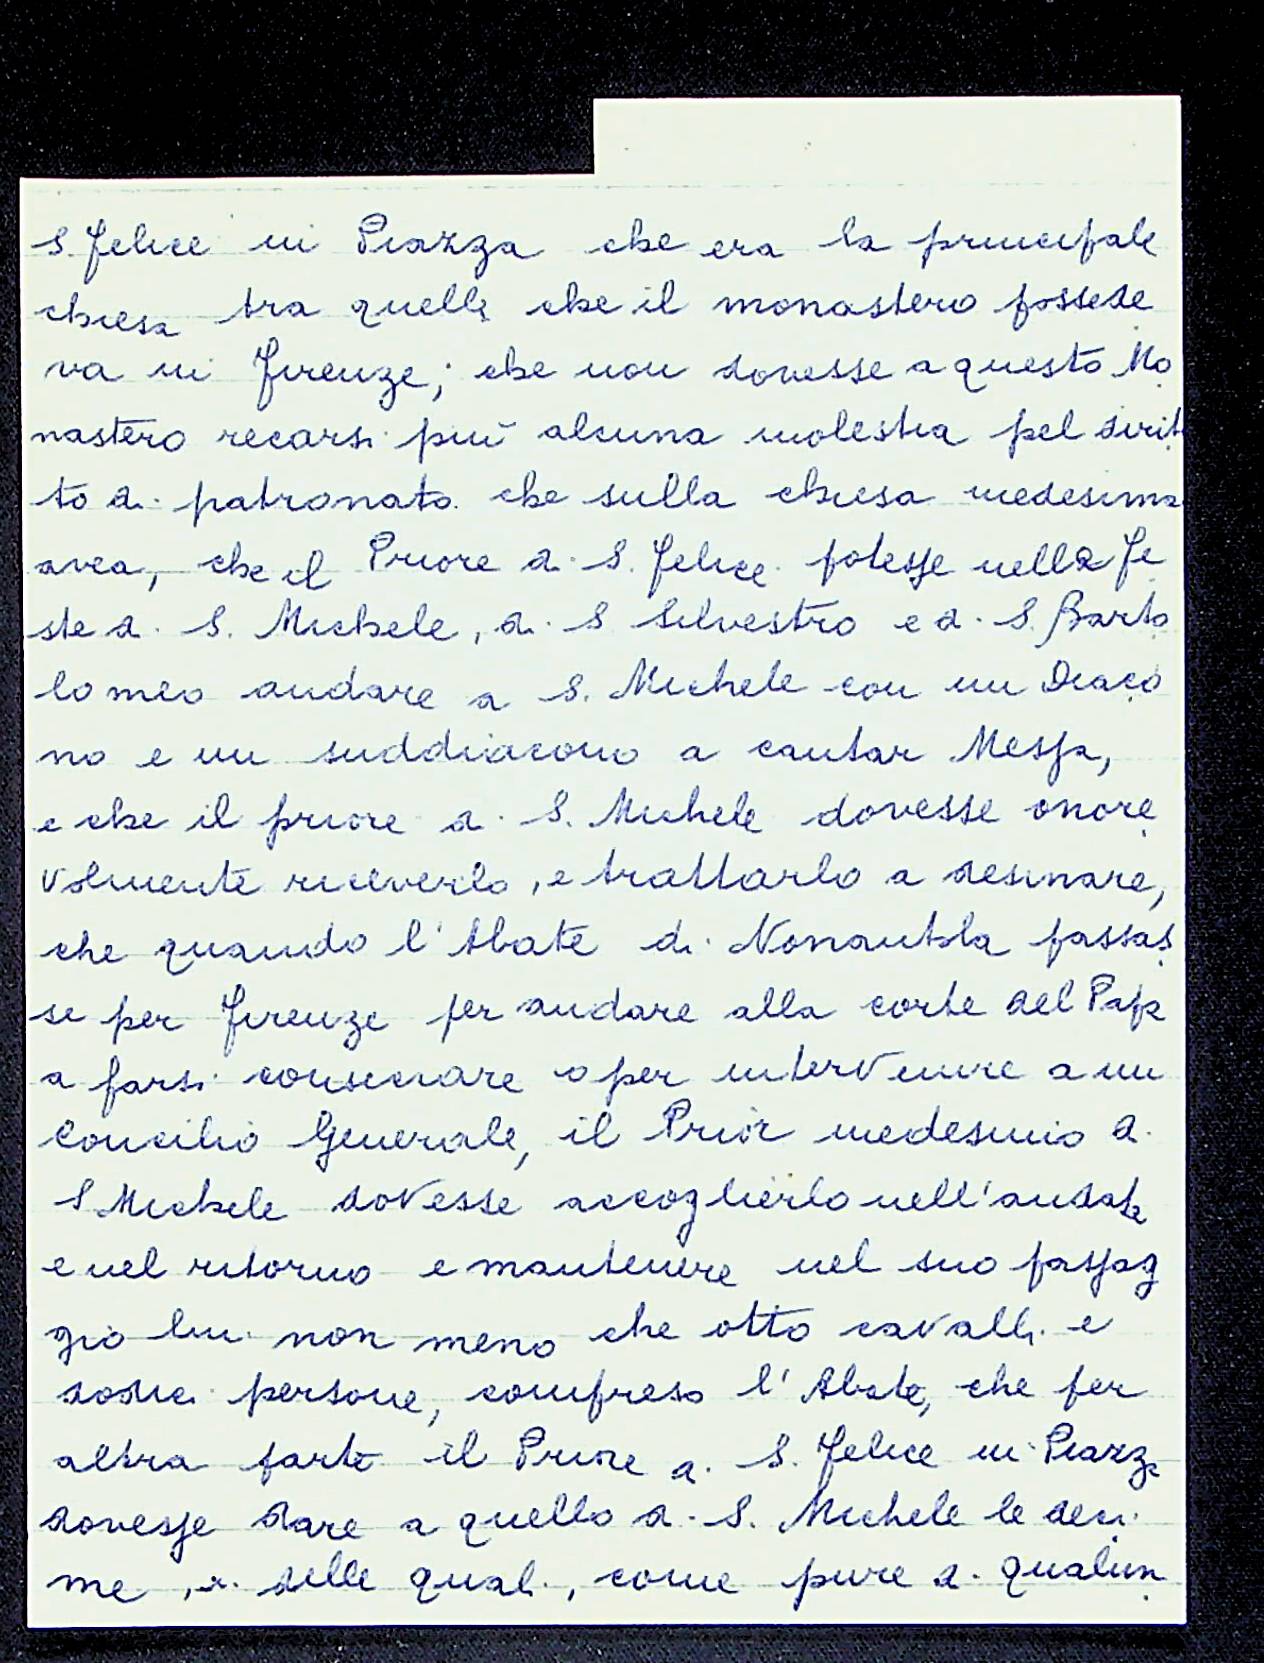 S. Felice in Piazza che era la principale
chiesa tra quelle che il monastero possede
va in Firenze; che non dovesse a questo Mo
nastero recarsi più alcuna molestia pel dirit
to di patronato che sulla chiesa medesima
avea, che il Priore di S. Felice potesse nelle Fe
ste di S. Michele, di S Silvestro e di S. Barto
lomeo andare a S. Michele con un Diaco
no e un suddiacono a cantar Messa,
e che il priore di S. Michele dovesse onore
volmente riceverlo, e trattarlo a desinare,
che quando l'Abate di Nonantola passas
se per Firenze per andare alla corte del Papa
a farsi consecrare o per intervenire a un
Concilio Generale, il Prior medesimo di
S Michele dovesse accoglierlo nell'andata
e nel ritorno e mantenere nel suo passag
gio lui non meno che otto cavalli e
dodici persone, compreso l'Abate, che per
altra parte il Priore di S. Felice in Piazza
dovesse dare a quello di S. Michele le deci
me, e delle quali, come pure di qualun